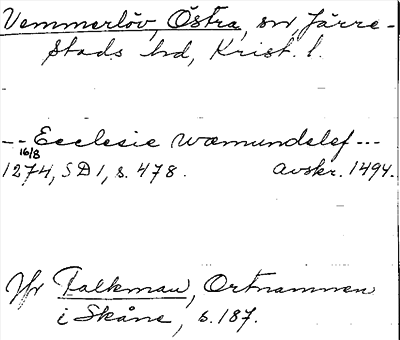 Vemmerlöv, Östra, sn, Järre-
stads hd, Krist. l.
-- Ecclesie Wæmundslef ---
16/8
1274, SD 1, s. 478. Avskr. 1494.
Jfr Falkman, Ortnamnen
i Skåne, s. 187.